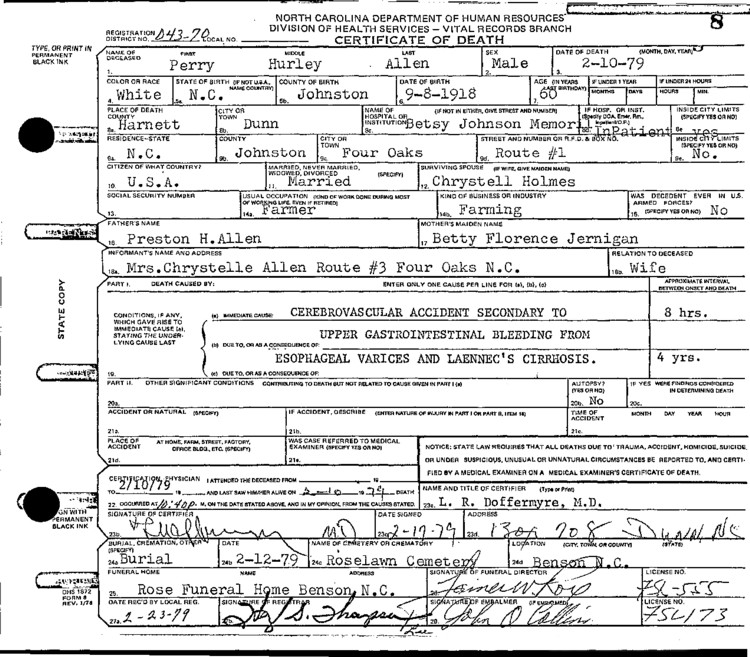 NORTH CAROLINA DEPARTMENT OF HUMAN RESOURCES
DIVISION OF HEALTH SERVICES – VITAL RECORDS BRANCH
CERTIFICATE OF DEATH
8
REGISTRATION DISTRICT NO. 043-70 LOCAL NO.
TYPE, OR PRINT IN PERMANENT BLACK INK
NAME OF DECEASED FIRST MIDDLE LAST SEX DATE OF DEATH (MONTH, DAY, YEAR)
1. Perry Hurley Allen 2. Male 3. 2-10-79
COLOR OR RACE STATE OF BIRTH (IF NOT U.S.A., NAME COUNTRY) COUNTY OF BIRTH DATE OF BIRTH AGE (IN YEARS LAST BIRTHDAY) IF UNDER 1 YEAR MONTHS DAYS IF UNDER 24 HOURS HOURS MIN.
4. White 5a. N.C. 5b. Johnston 6. 9-8-1918 7. 60
PLACE OF DEATH COUNTY CITY OR TOWN NAME OF HOSPITAL OR INSTITUTION (IF NOT IN EITHER, GIVE STREET AND NUMBER) IF HOSP. OR INST. INSIDE CITY LIMITS (SPECIFY YES OR NO)
8a. Harnett 8b. Dunn 8c. Betsy Johnson Memori 8d. InPatient 8e. yes
RESIDENCE–STATE COUNTY CITY OR TOWN STREET AND NUMBER OR R.F.D. & BOX NO. INSIDE CITY LIMITS (SPECIFY YES OR NO)
9a. N.C. 9b. Johnston 9c. Four Oaks 9d. Route #1 9e. No.
CITIZEN OF WHAT COUNTRY? MARRIED, NEVER MARRIED, WIDOWED, DIVORCED (SPECIFY) SURVIVING SPOUSE (IF WIFE, GIVE MAIDEN NAME)
10. U.S.A. 11. Married 12. Chrystell Holmes
SOCIAL SECURITY NUMBER USUAL OCCUPATION (KIND OF WORK DONE DURING MOST OF WORKING LIFE, EVEN IF RETIRED) KIND OF BUSINESS OR INDUSTRY WAS DECEDENT EVER IN U.S. ARMED FORCES?
13. 14a. Farmer 14b. Farming 15. (SPECIFY YES OR NO) No
FATHER'S NAME MOTHER'S MAIDEN NAME
16. Preston H.Allen 17. Betty Florence Jernigan
INFORMANT'S NAME AND ADDRESS RELATION TO DECEASED
18a. Mrs.Chrystelle Allen Route #3 Four Oaks N.C. 18b. Wife
STATE COPY
PART I. DEATH CAUSED BY: ENTER ONLY ONE CAUSE PER LINE FOR (a), (b), (c) APPROXIMATE INTERVAL BETWEEN ONSET AND DEATH
CONDITIONS, IF ANY, WHICH GAVE RISE TO IMMEDIATE CAUSE (a), STATING THE UNDERLYING CAUSE LAST
(a) IMMEDIATE CAUSE: CEREBROVASCULAR ACCIDENT SECONDARY TO 8 hrs.
UPPER GASTROINTESTINAL BLEEDING FROM
(b) DUE TO, OR AS A CONSEQUENCE OF:
ESOPHAGEAL VARICES AND LAENNEC'S CIRRHOSIS. 4 yrs.
19. (c) DUE TO, OR AS A CONSEQUENCE OF:
PART II. OTHER SIGNIFICANT CONDITIONS CONTRIBUTING TO DEATH BUT NOT RELATED TO CAUSE GIVEN IN PART I (a) AUTOPSY? (YES OR NO) IF YES WERE FINDINGS CONSIDERED IN DETERMINING DEATH
20a. 20b. No 20c.
ACCIDENT OR NATURAL (SPECIFY) IF ACCIDENT, DESCRIBE (ENTER NATURE OF INJURY IN PART I OR PART II, ITEM 18) TIME OF ACCIDENT MONTH DAY YEAR HOUR
21a. 21b. 21c.
PLACE OF ACCIDENT AT HOME, FARM, STREET, FACTORY, OFFICE BLDG., ETC. (SPECIFY) WAS CASE REFERRED TO MEDICAL EXAMINER (SPECIFY YES OR NO)
21d. 21e.
NOTICE: STATE LAW REQUIRES THAT ALL DEATHS DUE TO TRAUMA, ACCIDENT, HOMICIDE, SUICIDE,
OR UNDER SUSPICIOUS, UNUSUAL OR UNNATURAL CIRCUMSTANCES BE REPORTED TO, AND CERTI-
FIED BY A MEDICAL EXAMINER ON A MEDICAL EXAMINER'S CERTIFICATE OF DEATH.
CERTIFICATION, PHYSICIAN I ATTENDED THE DECEASED FROM 19
2/10/79
TO 19 AND LAST SAW HIM/HER ALIVE ON 2-10 1979 DEATH
22. OCCURRED AT 10:40P M. ON THE DATE STATED ABOVE, AND IN MY OPINION, FROM THE CAUSES STATED.
NAME AND TITLE OF CERTIFIER (Type or Print)
23a. L. R. Doffermyre, M.D.
SIGNATURE OF CERTIFIER DATE SIGNED ADDRESS
23b. MD 23c. 2-17-79 23d. Box 708 Dunn NC
PERMANENT BLACK INK
BURIAL, CREMATION, OTHER (SPECIFY) DATE NAME OF CEMETERY OR CREMATORY LOCATION (CITY, TOWN, OR COUNTY) (STATE)
24a. Burial 24b. 2-12-79 24c. Roselawn Cemetery 24d. Benson N.C.
FUNERAL HOME NAME ADDRESS SIGNATURE OF FUNERAL DIRECTOR LICENSE NO.
25. Rose Funeral Home Benson, N.C. 26. James W Rose
DHS 1872
FORM 8
REV. 1/78
DATE REC'D BY LOCAL REG. SIGNATURE OF REGISTRAR SIGNATURE OF EMBALMER (IF EMBALMED) LICENSE NO.
27a. 2-23-79 27b. S. Thompson 28. John D Collins FSL173